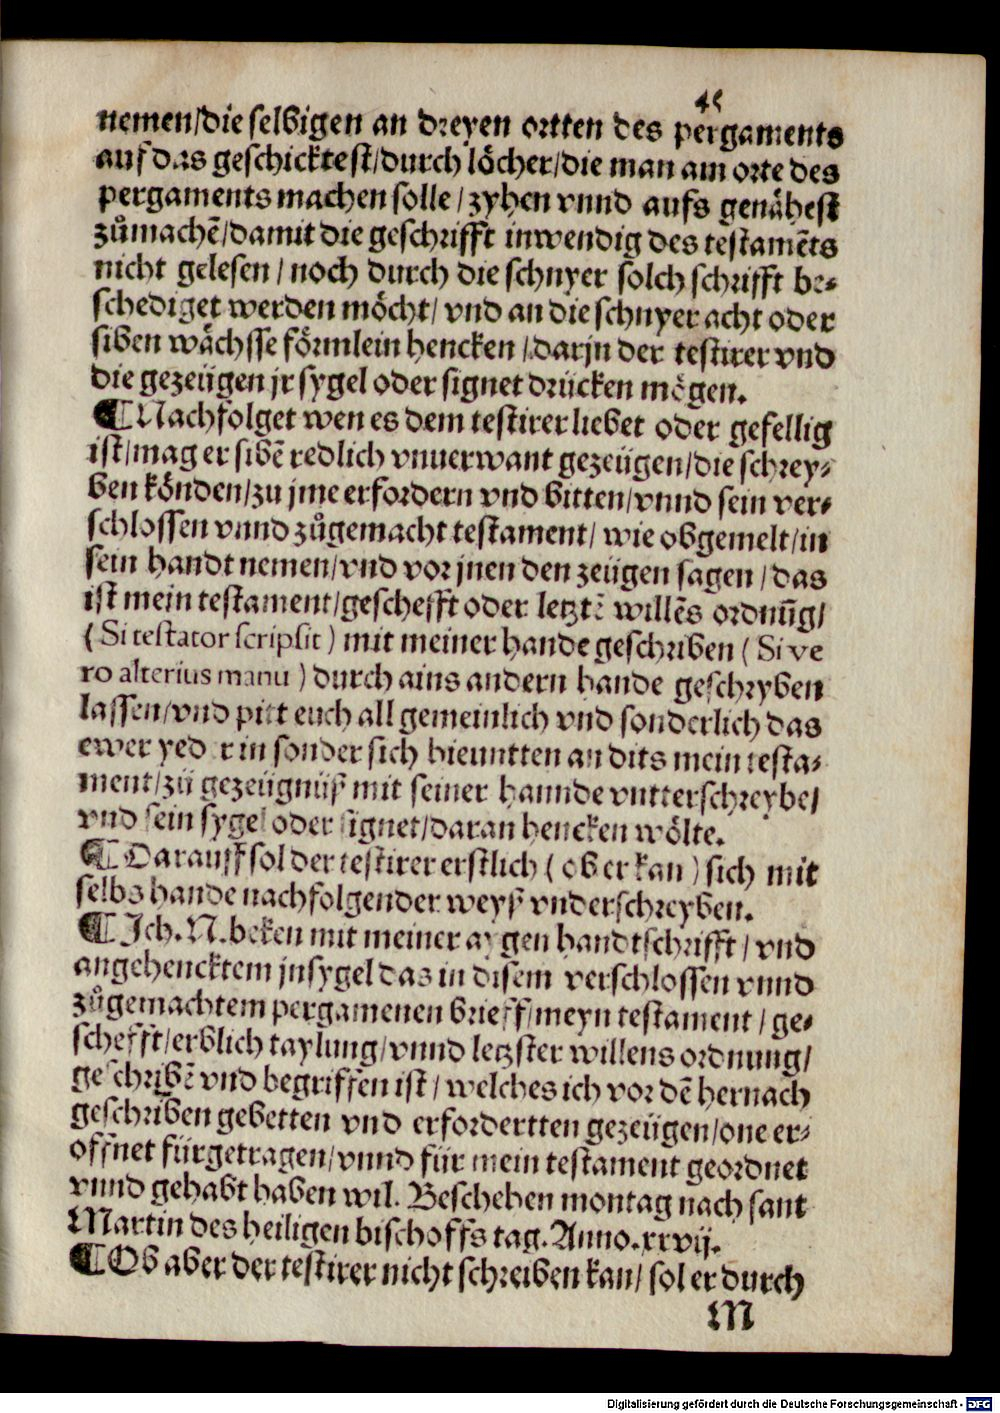 45
nemen/die selbigen an dreyen ortten des pergaments
auf das geschicktest/durch löcher/die man am orte des
pergaments machen solle / zyhen vnnd aufs genähest
zůmachē/damit die geschrifft inwendig des testamēts
nicht gelesen / noch durch die schnyer solch schrifft be-
schediget werden möcht/ vnd an die schnyer acht oder
siben wächsse förmlein hencken / darjn der testirer vnd
die gezeügen jr sygel oder signet drücken mögen.
¶ Nachfolget wen es dem testirer liebet oder gefellig
ist/mag er sibē redlich vnuerwant gezeügen/die schrey-
ben könden/zu jme erfordern vnd bitten/vnnd sein ver-
schlossen vnnd zůgemacht testament/ wie obgemelt/in
sein handt nemen/vnd vor jnen den zeügen sagen / das
ist mein testament/geschefft oder letztē willēs ordnūg/
( Si testator scripsit ) mit meiner hande geschriben ( Si ve
ro alterius manu ) durch ains andern hande geschryben
lassen/vnd pitt euch all gemeinlich vnd sonderlich das
ewer yeder in sonder sich hieuntten an dits mein testa-
ment/zů gezeügnüß mit seiner hannde vntterschreybe/
vnd sein sygel oder signet/daran hencken wölte.
¶ Darauff sol der testirer erstlich ( ob er kan ) sich mit
selbs hande nachfolgender weyß vnderschreyben.
¶ Ich. N. beken mit meiner aygen handtschrifft / vnd
angehencktem jnsygel das in disem verschlossen vnnd
zůgemachtem pergamenen brieff/meyn testament / ge-
schefft/erblich taylung/vnnd letzster willens ordnung/
geschribē vnd begriffen ist / welches ich vor dē hernach
geschriben gebetten vnd erfordertten gezeügen/one er-
öffnet fürgetragen/vnnd für mein testament geordnet
vnnd gehabt haben wil. Beschehen montag nach sant
Martin des heiligen bischoffs tag. Anno. xxvij.
¶ Ob aber der testirer nicht schreiben kan/ sol er durch
M
Digitalisierung gefördert durch die Deutsche Forschungsgemeinschaft - DFG